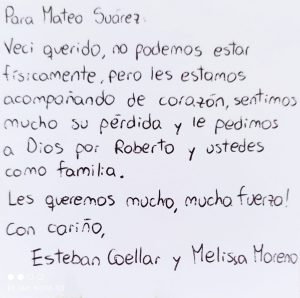 Para Mateo Suárez:
Veci querido, no podemos estar
físicamente, pero les estamos
acompañando de corazón, sentimos
mucho su pérdida y le pedimos
a Dios por Roberto y ustedes
como familia.
Les queremos mucho, mucha fuerza!
Con cariño,
Esteban Coellar y Melissa Moreno